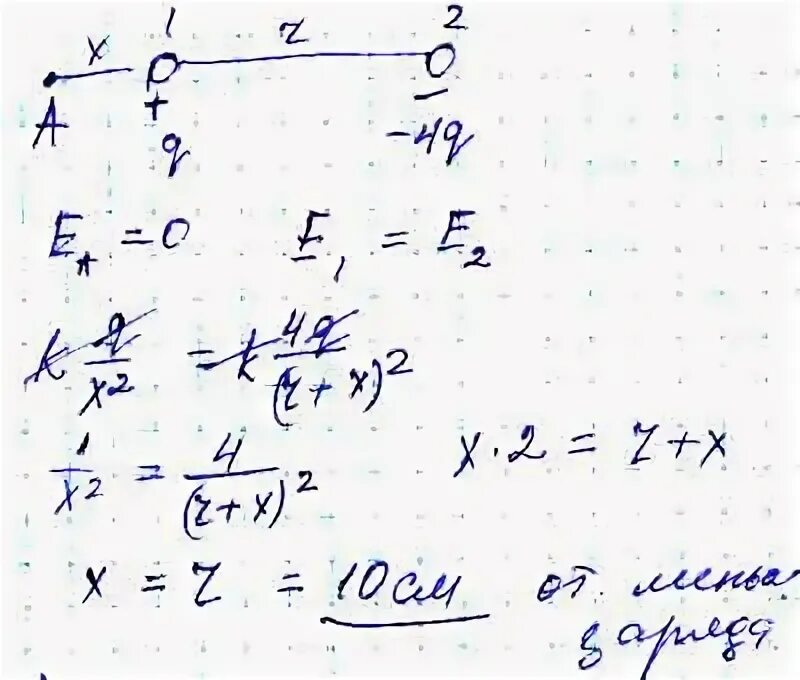 1 2
x r
A + −
q −4q
E_A = 0 E_1 = E_2
k q/x² = k 4q/(r+x)²
1/x² = 4/(r+x)² x·2 = r+x
x = r = 10 см от меньш
заряда